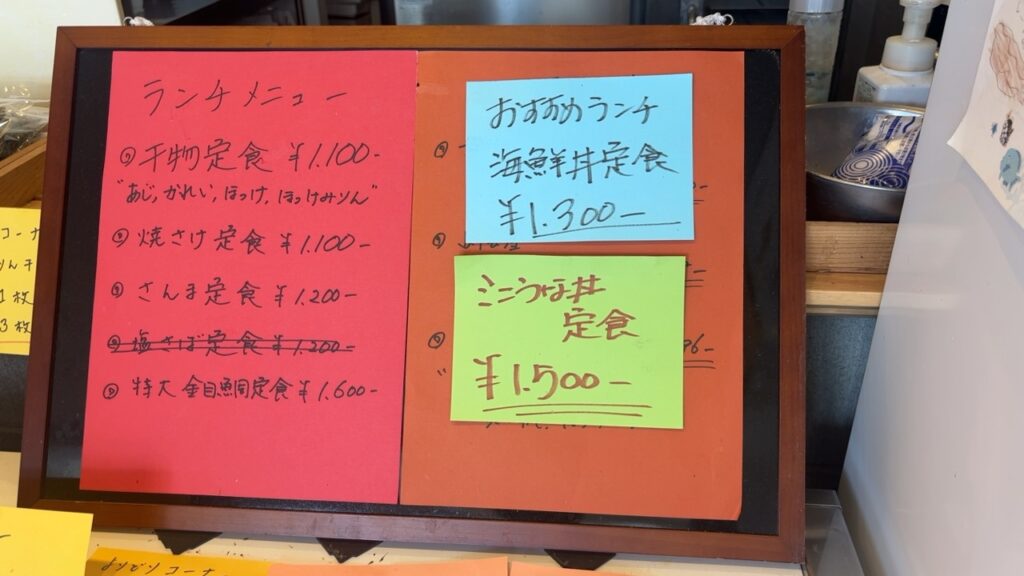 ランチメニュー
干物定食 ¥1.100-
"あじ,かれい,ほっけ,ほっけみりん"
焼さけ定食 ¥1.100-
さんま定食 ¥1.200-
塩さば定食 ¥1.200-
特大 金目鯛定食 ¥1.600-
おすすめランチ
海鮮丼定食
¥1.300-
ミニうな丼
定食
¥1.500-
よりどりコーナー